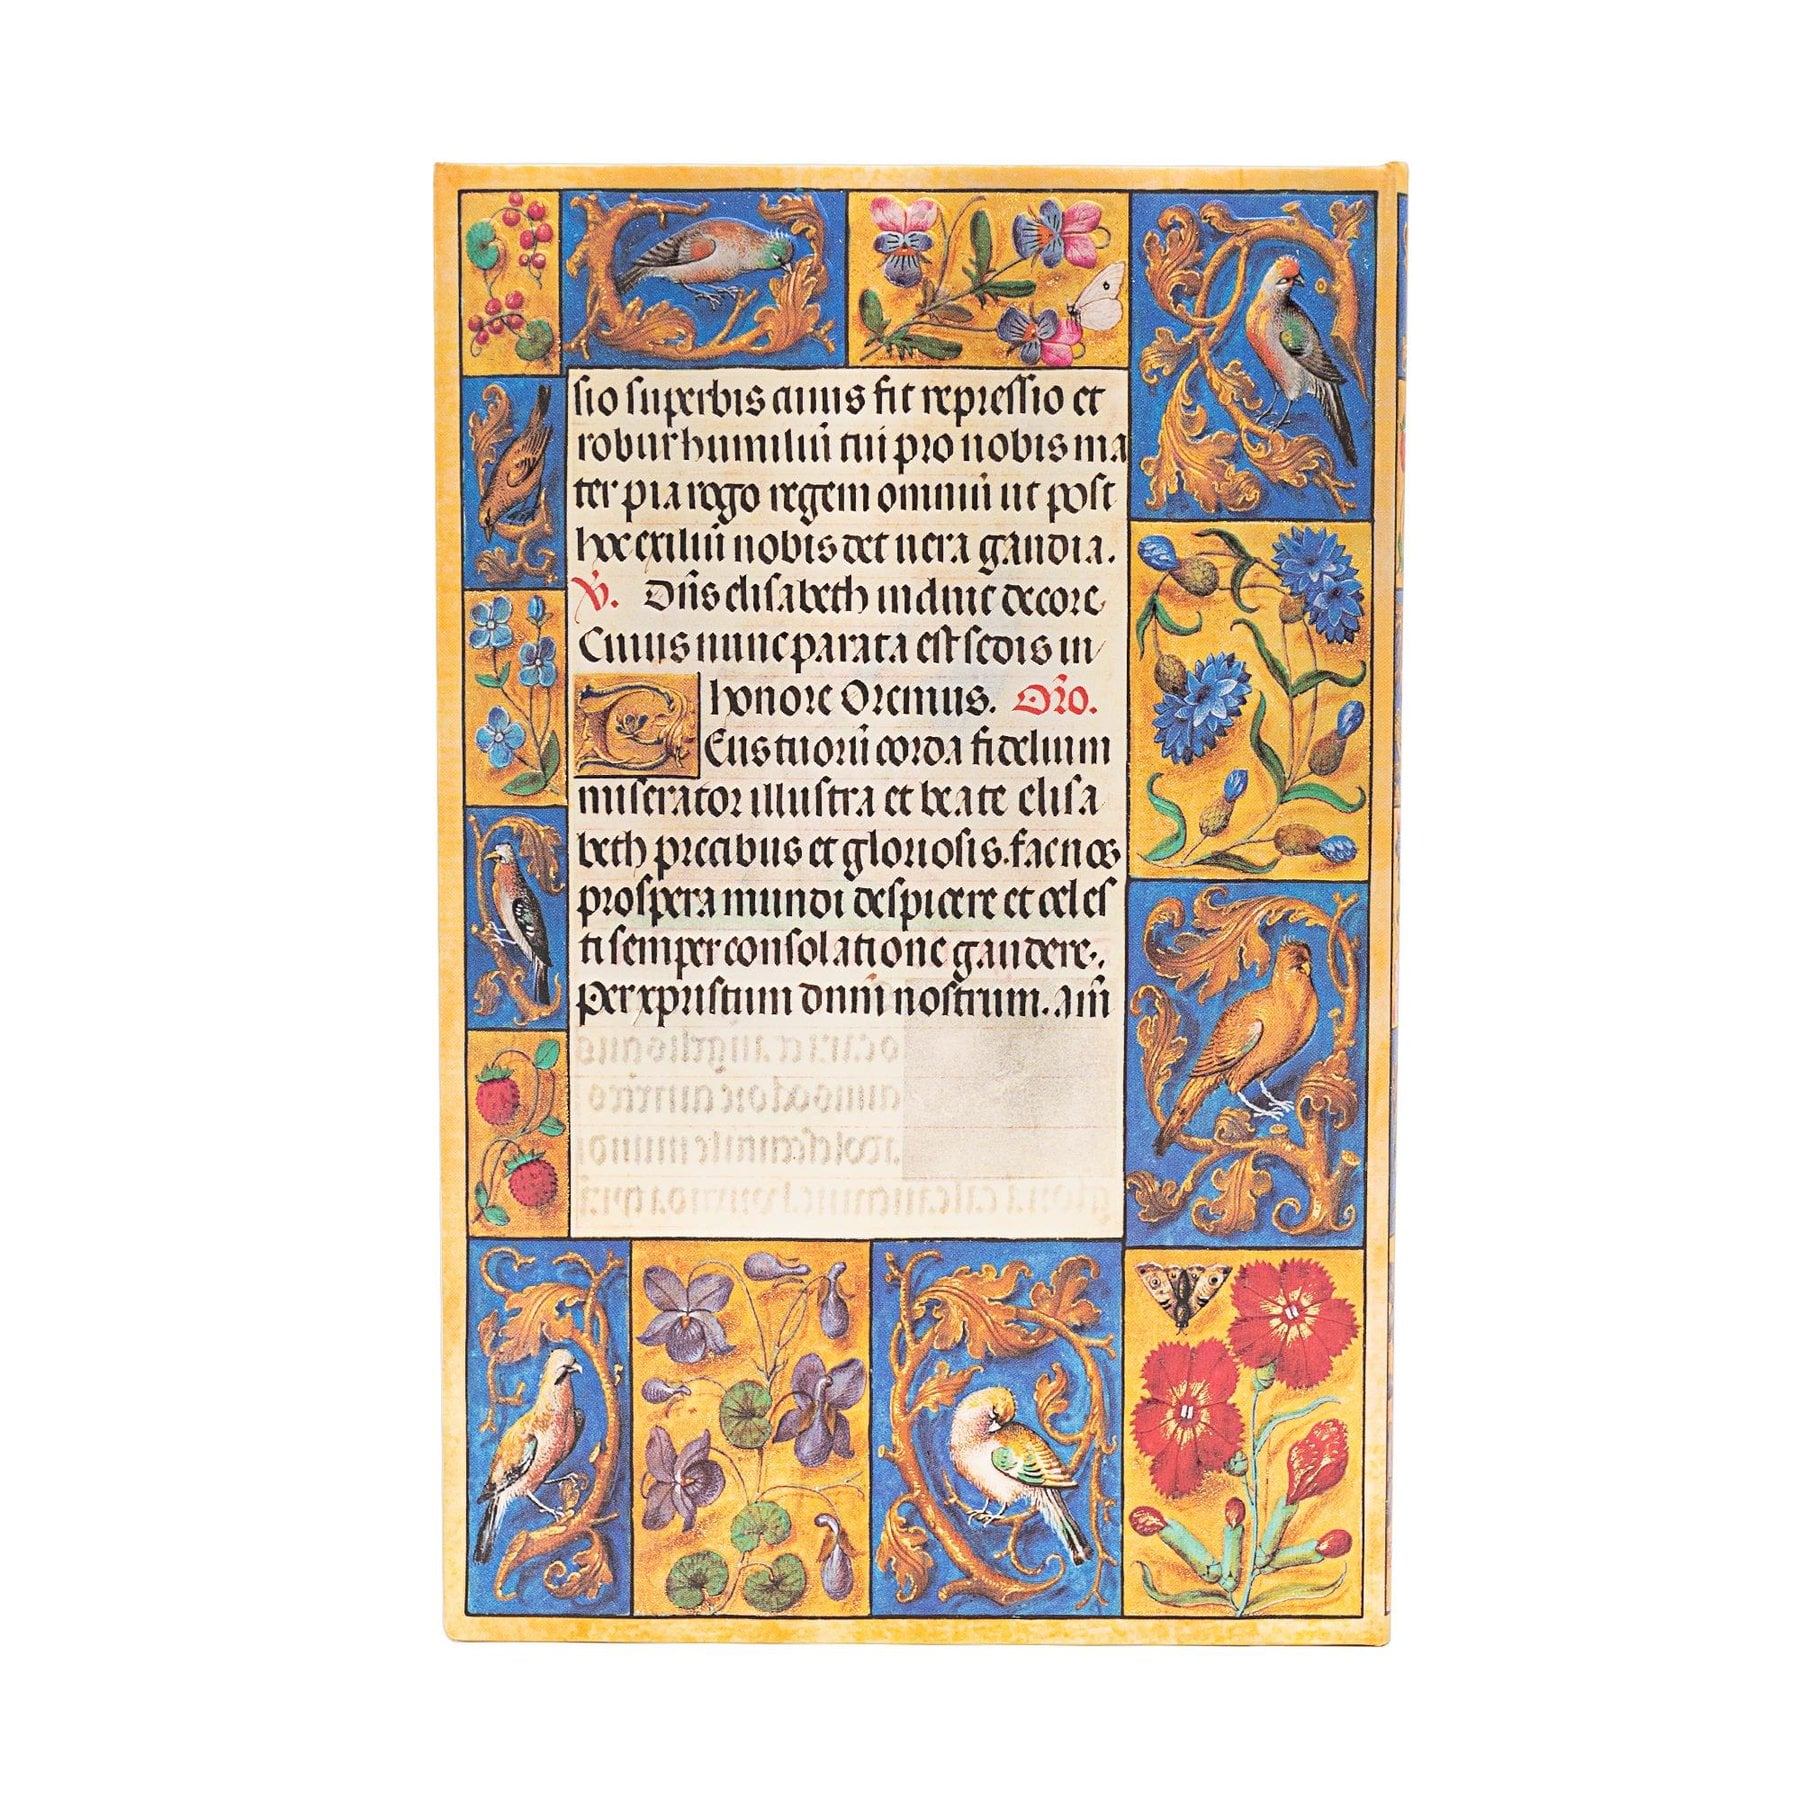 sio superbis cuius fit repressio et
robur humiliū tui pro nobis ma
ter pia rogo regem omniū ut post
hoc exiliū nobis det uera gaudia.
V̄. Dn̄s elisabeth induit decore
Cuius nunc parata est sedis in
honore Oremus. Or̄o.
DEus tuorū corda fidelium
miserator illustra et beate elisa
beth precibus et gloriosis. fac nos
prospera mundi despicere et celes
ti semper consolatione gaudere.
Per xp̄ristum dnm̄ nostrum. Am̄